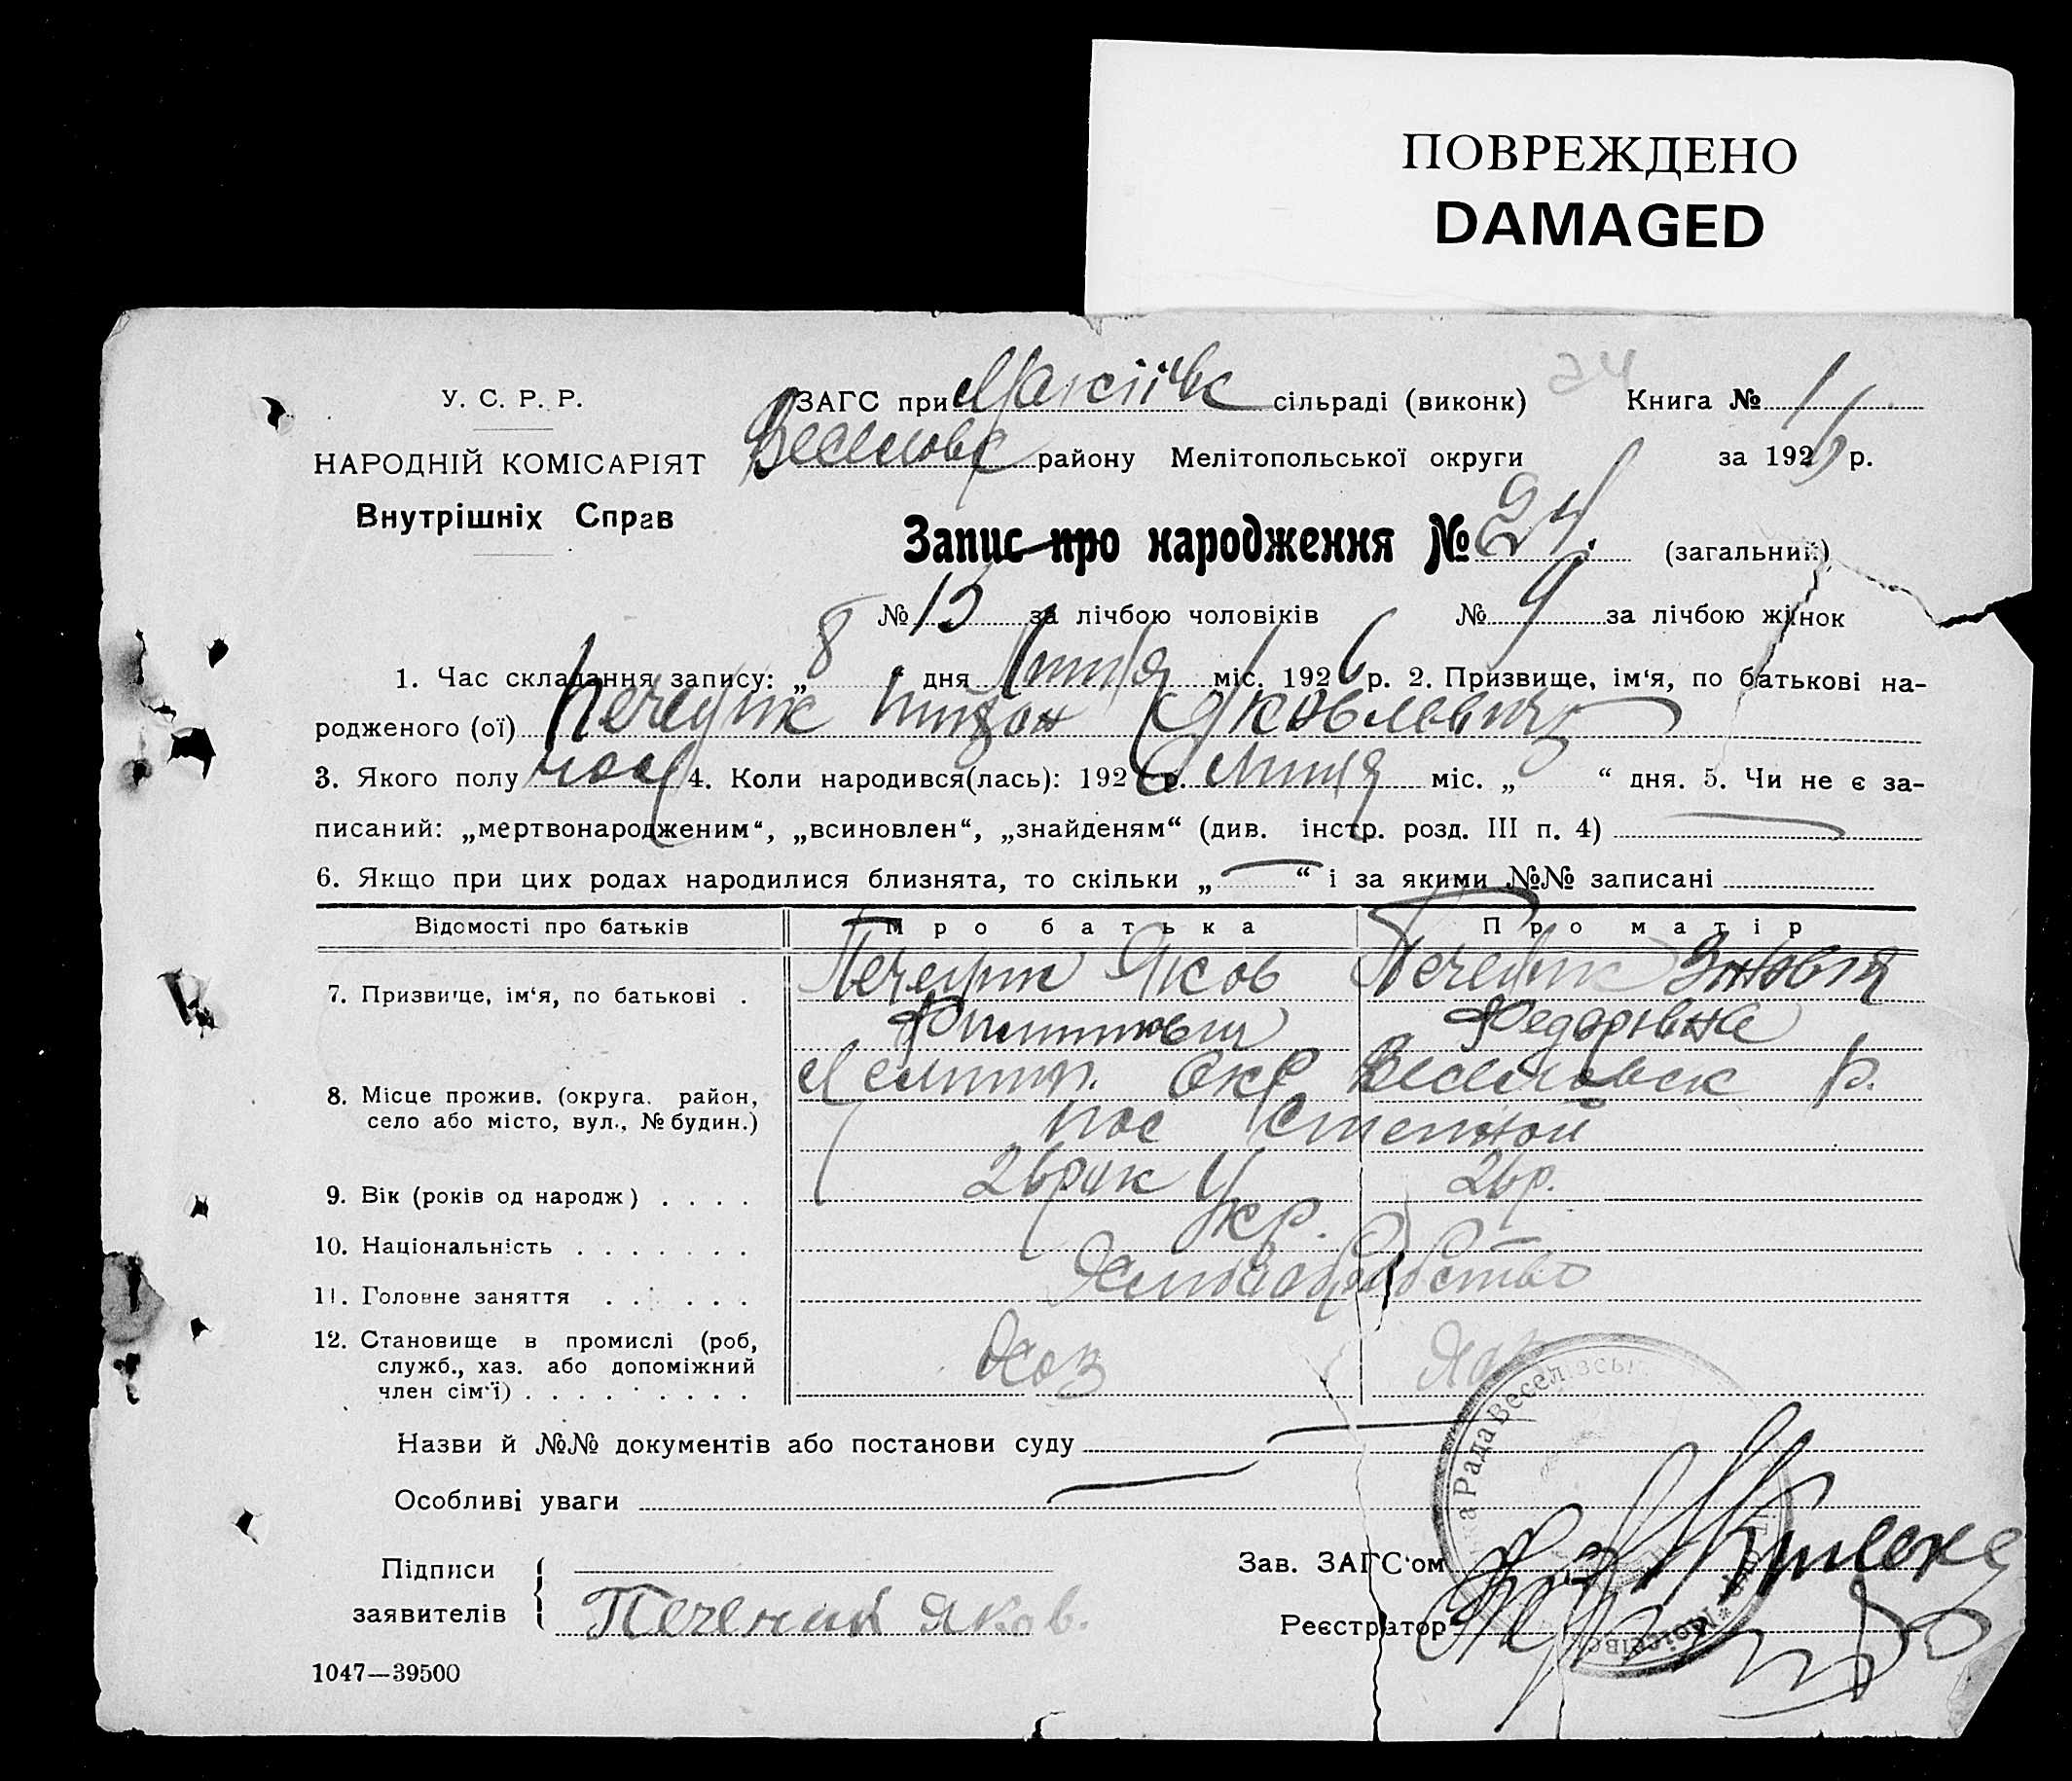 ПОВРЕЖДЕНО
DAMAGED
У. С. Р. Р.
НАРОДНІЙ КОМІСАРІЯТ
Внутрішніх Справ
24
ЗАГС при сільраді (виконк) Книга № 1
Веселовс району Мелітопольської округи за 1926 р.
Запис про народження № 24. (загальний)
№ 15 за лічбою чоловіків № 9 за лічбою жінок
1. Час складання запису: „ 8 " дня Липня міс. 1926 р. 2. Призвище, ім'я, по батькові на-
родженого (ої) Яковлевич
3. Якого полу чол 4. Коли народився(лась): 1926 р. Липня міс. „ “ дня. 5. Чи не є за-
писаний: „мертвонародженим“, „всиновлен“, „знайденям“ (див. інстр. розд. III п. 4)
6. Якщо при цих родах народилися близнята, то скільки „ — “ і за якими №№ записані
Відомості про батьків Про батька Про матір
7. Призвище, ім'я, по батькові . Яков
Федорівна
8. Місце прожив. (округа. район, Мелитп. Окр Веселовск р.
село або місто, вул., № будин.) пос Степной
9. Вік (років од народж) . . . . 26 рок 26 р.
10. Національність . . . . . . . Укр.
11. Головне заняття . . . . . . Хліборобство
12. Становище в промислі (роб, Хоз
служб., хаз. або допоміжний
член сім'ї) . . . . . . . . .
Назви й №№ документів або постанови суду
Особливі уваги
Підписи
заявителів Яков.
Зав. ЗАГС'ом
Реєстратор
Рада Веселівськ
1047—39500